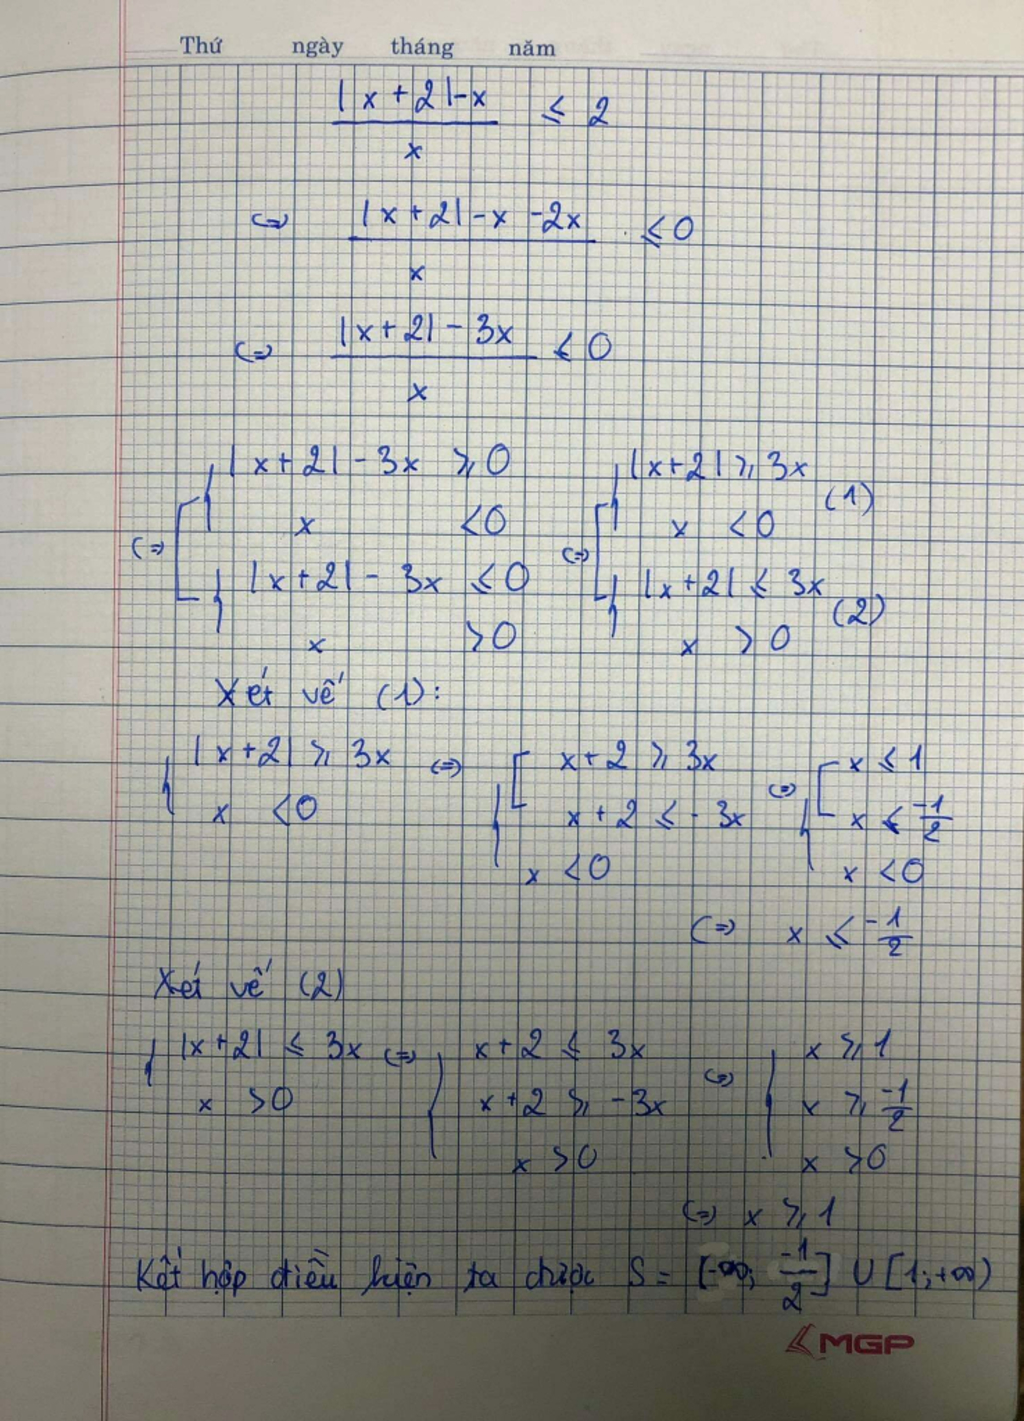 Thứ ngày tháng năm
|x+2|-x / x ≤ 2
(=) |x+2|-x-2x / x ≤ 0
(=) |x+2|-3x / x ≤ 0
(=) [ { |x+2|-3x ≥ 0 (=) [ { |x+2| ≥ 3x
x < 0 x < 0 (1)
{ |x+2|-3x ≤ 0 { |x+2| ≤ 3x
x > 0 x > 0 (2)
Xét vế (1):
{ |x+2| ≥ 3x (=) { [ x+2 ≥ 3x (=) { [ x ≤ 1
x < 0 x+2 ≤ -3x x ≤ -1/2
x < 0 x < 0
(=) x ≤ -1/2
Xét vế (2)
{ |x+2| ≤ 3x (=) { x+2 ≤ 3x (=) { x ≥ 1
x > 0 x+2 ≥ -3x x ≥ -1/2
x > 0 x > 0
(=) x ≥ 1
Kết hợp điều kiện ta được S = [-∞; -1/2] U [1; +∞)
MGP